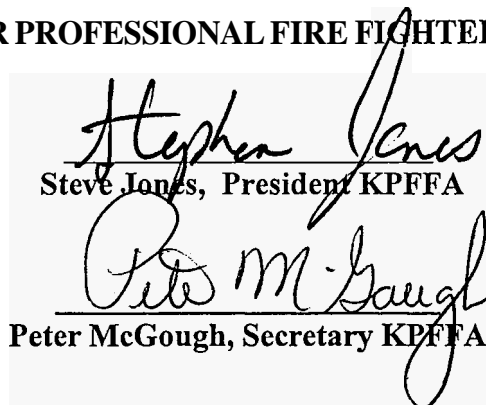 R PROFESSIONAL FIRE FIGHTE
Stephen Jones
Steve Jones, President KPFFA
Pete McGough
Peter McGough, Secretary KPFFA